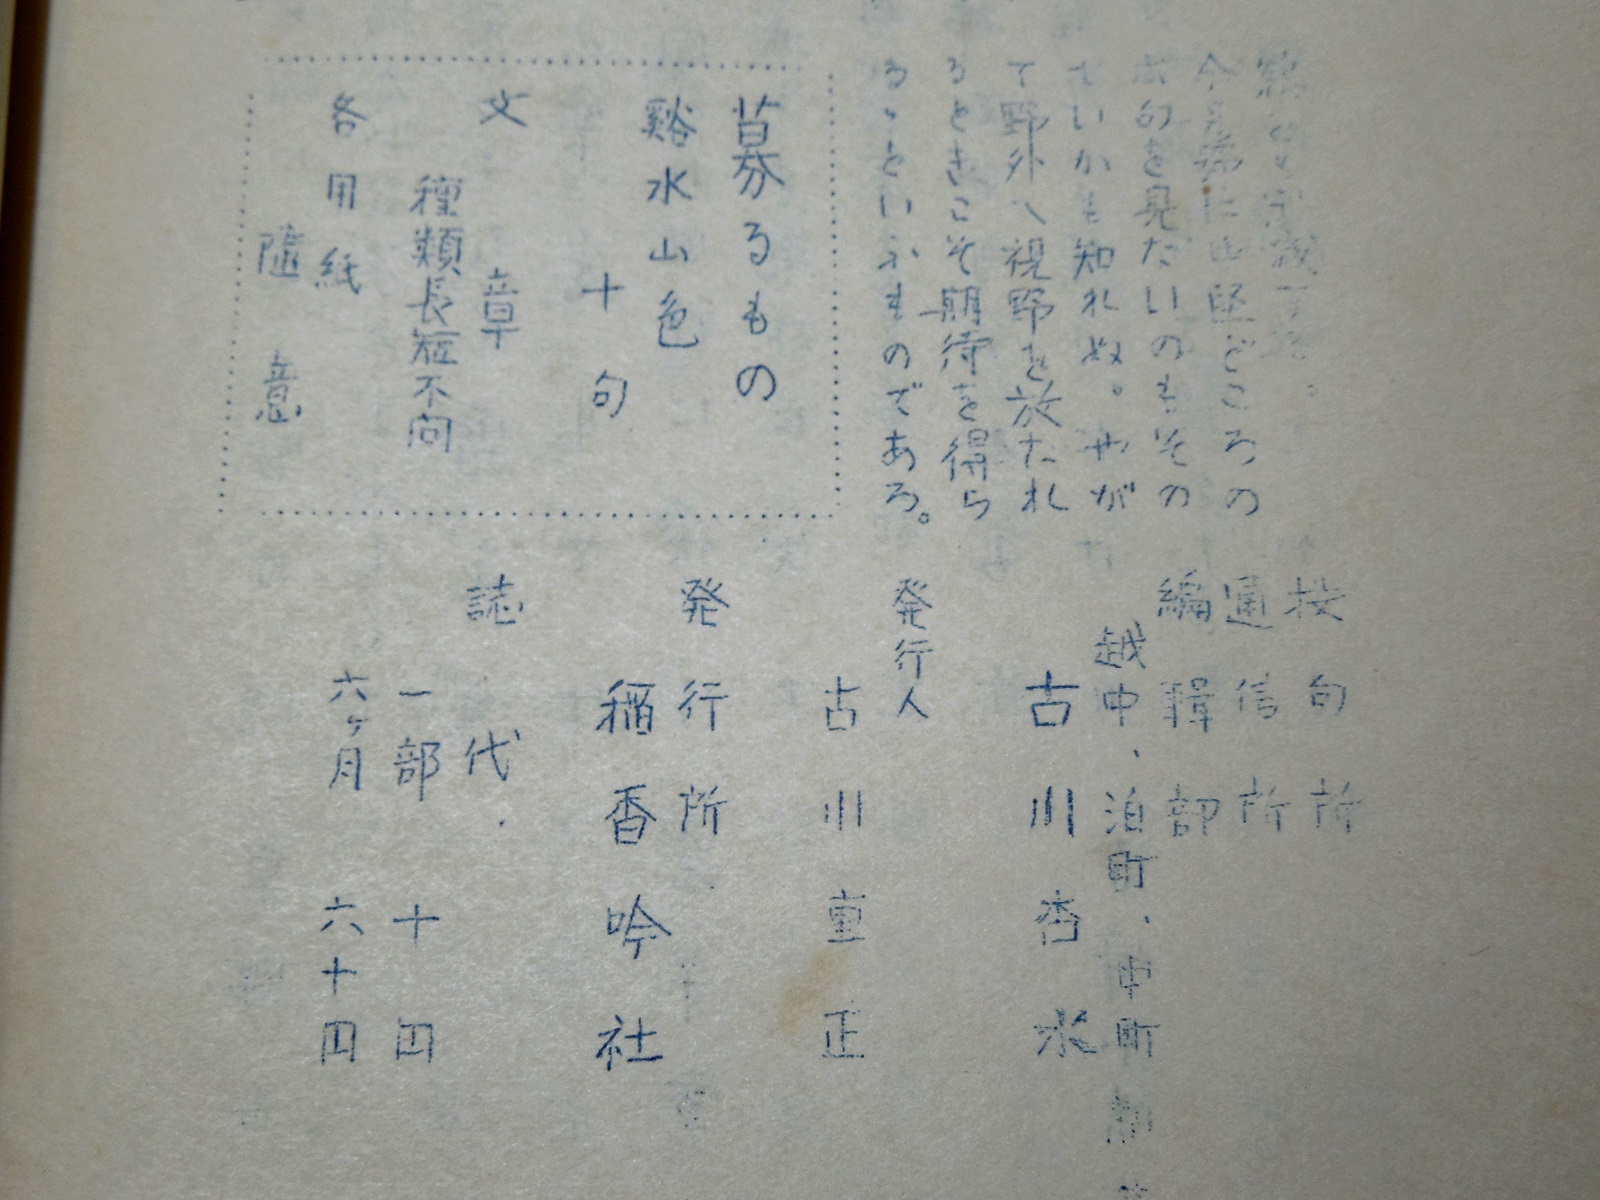 句を見たいのもその
いかも知れぬ。やが
て野外へ視野を放たれ
るときこそ期待を得ら
るゝといふものであろ。
募るもの
谿水山色
十句
文章
種類長短不问
各用紙
隨意
投句所
通信所
編輯部
越中、泊町、中町
古川香水
発行人
古川重正
発行所
稲香吟社
誌代
一部 十円
六ヶ月 六十円